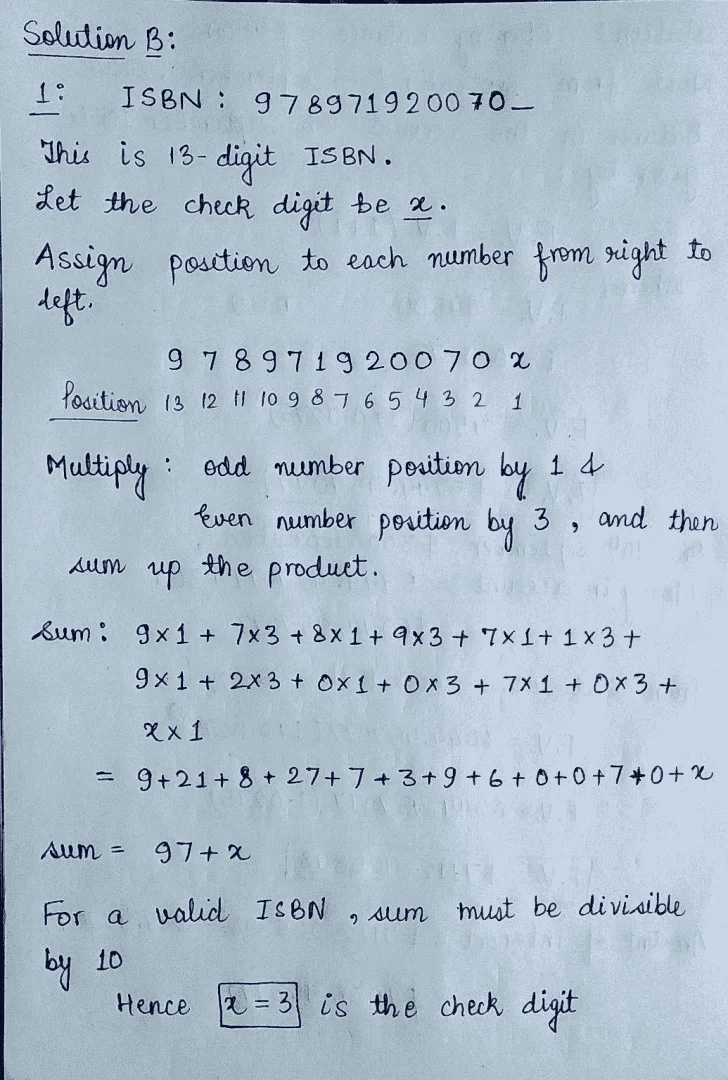 Solution B:
1: ISBN : 978971920070_
This is 13-digit ISBN.
Let the check digit be x.
Assign position to each number from right to
left.
9 7 8 9 7 1 9 2 0 0 7 0 x
Position 13 12 11 10 9 8 7 6 5 4 3 2 1
Multiply : odd number position by 1 &
Even number position by 3 , and then
sum up the product.
Sum : 9×1 + 7×3 + 8×1 + 9×3 + 7×1 + 1×3 +
9×1 + 2×3 + 0×1 + 0×3 + 7×1 + 0×3 +
x×1
= 9+21+8+27+7+3+9+6+0+0+7+0+x
sum = 97+x
For a valid ISBN , sum must be divisible
by 10
Hence x = 3 is the check digit